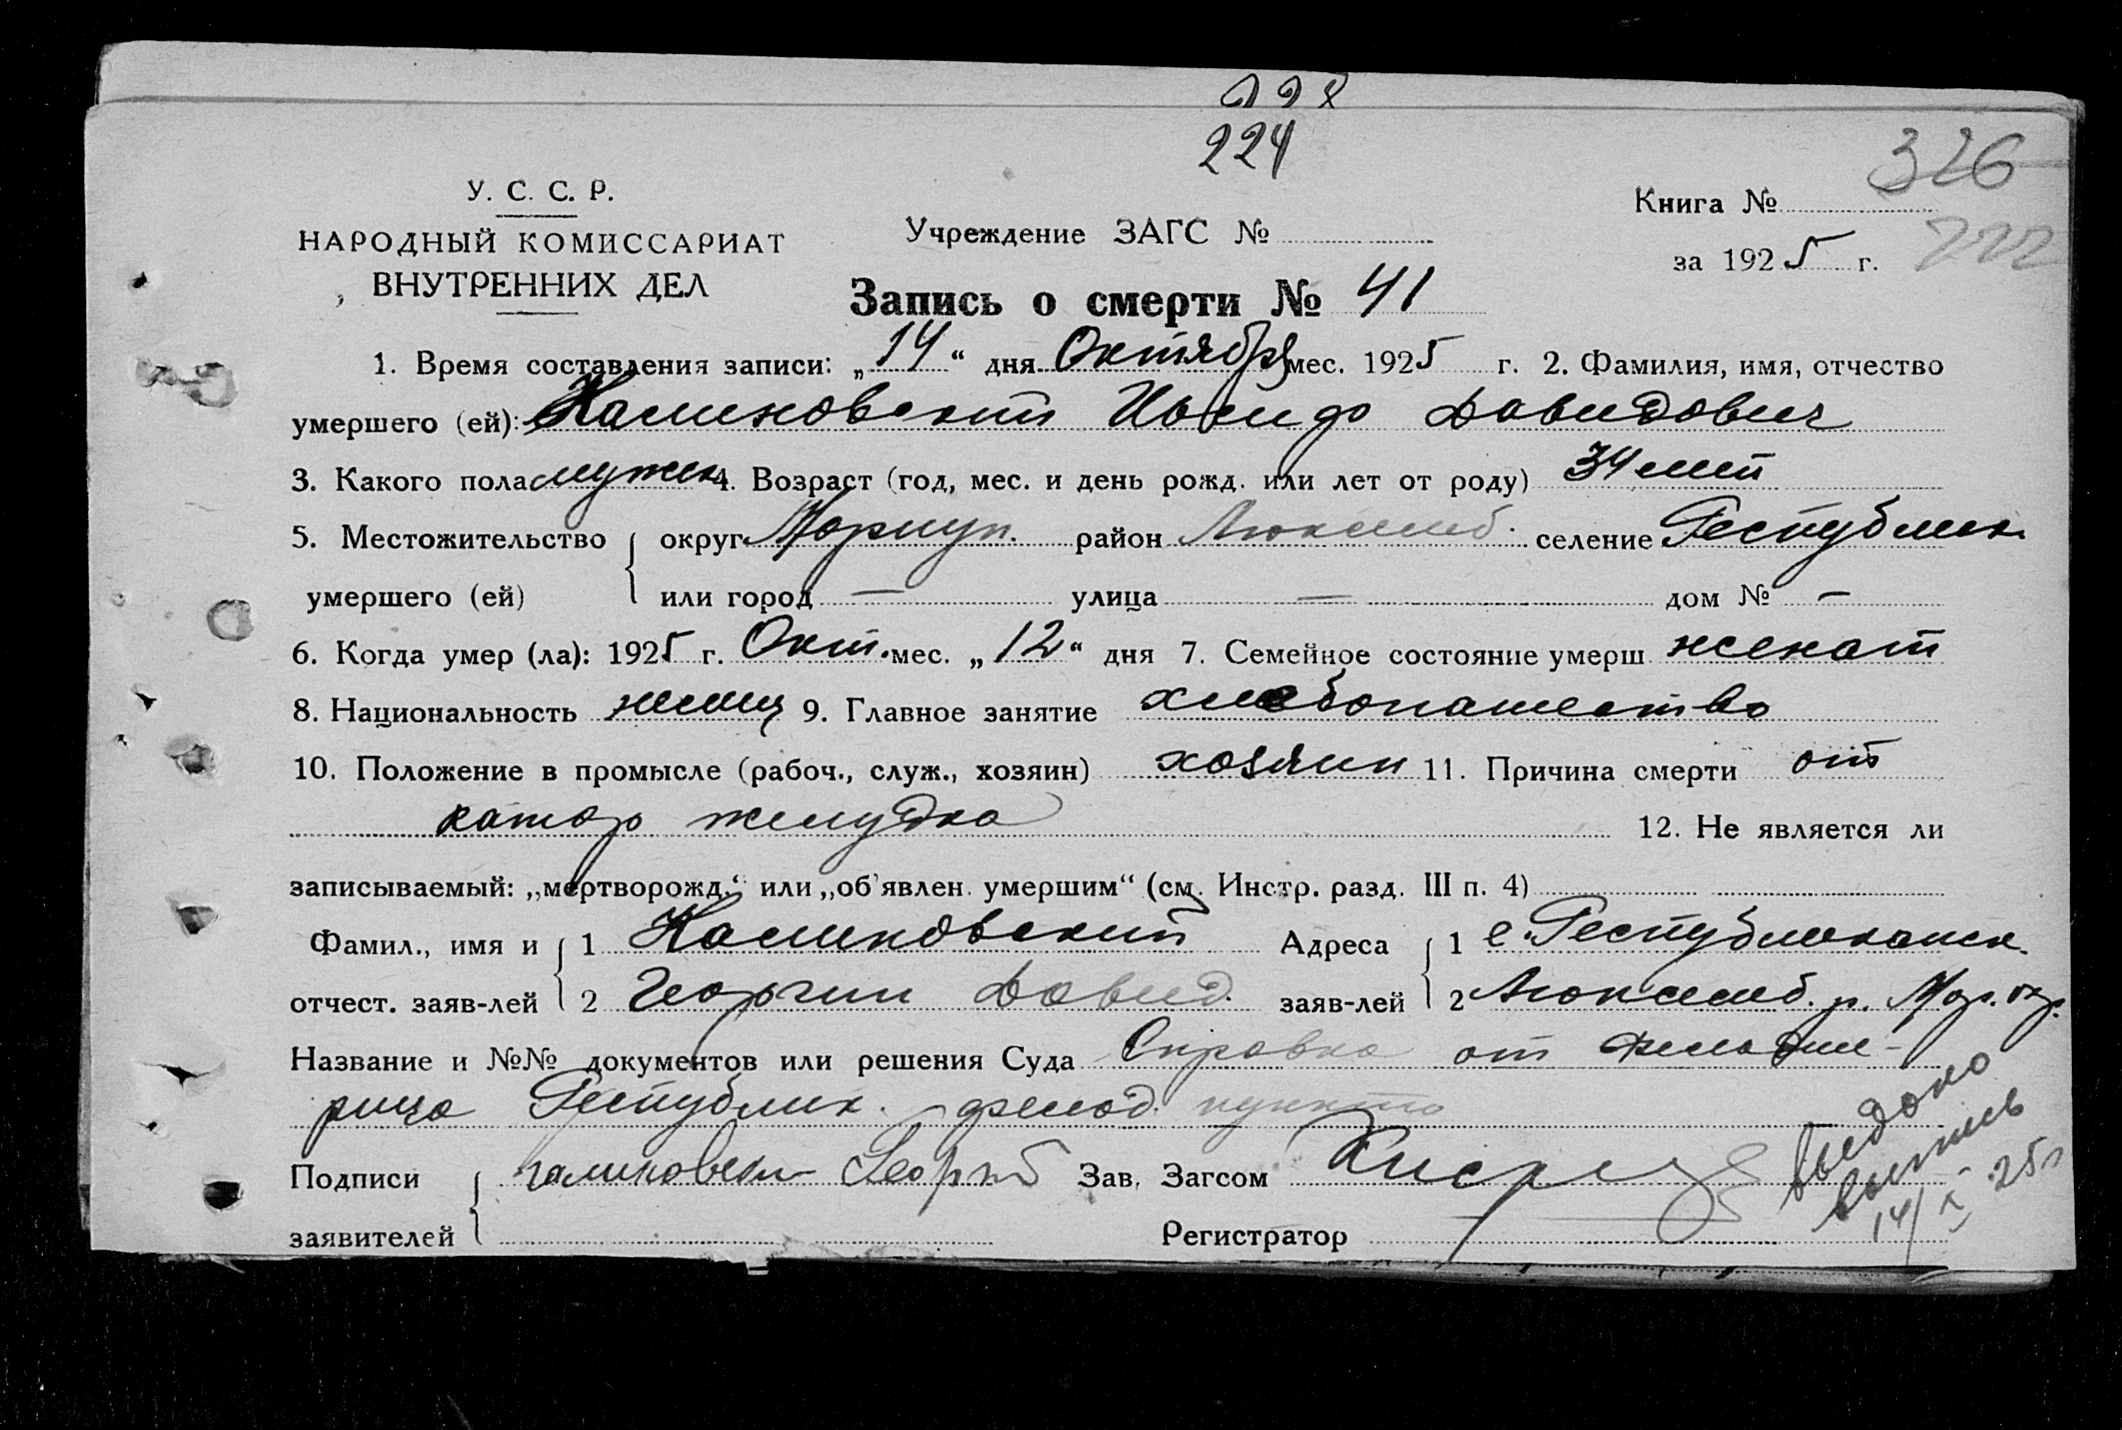 224
326
222
У. С. С. Р.
НАРОДНЫЙ КОМИССАРИАТ
ВНУТРЕННИХ ДЕЛ
Учреждение ЗАГС №
Книга №
за 1925 г.
Запись о смерти № 41
1. Время составления записи: „14“ дня Октября мес. 1925 г. 2. Фамилия, имя, отчество
умершего (ей): Калиновский Давидович
3. Какого пола мужск 4. Возраст (год, мес. и день рожд. или лет от роду) 34 лет
5. Местожительство округ Мариуп. район Люксемб. селение Республик.
умершего (ей) или город — улица — дом № —
6. Когда умер (ла): 1925 г. Окт. мес. „12“ дня 7. Семейное состояние умерш женат
8. Национальность немец 9. Главное занятие хлебопашество
10. Положение в промысле (рабоч., служ., хозяин) хозяин 11. Причина смерти от
катар желудка 12. Не является ли
записываемый: „мертворожд.“ или „об'явлен умершим“ (см. Инстр. разд. III п. 4)
Фамил., имя и 1 Калиновский Адреса 1 с. Республиканск.
отчест. заяв-лей 2 Георгий Давид. заяв-лей 2 Люксемб. р. Мар. окр.
Название и №№ документов или решения Суда Справка от фельдше-
рица Республик. фельд. пункта
Подписи Георгий Зав. Загсом
заявителей Регистратор
выдана
выпись
14/X 25г